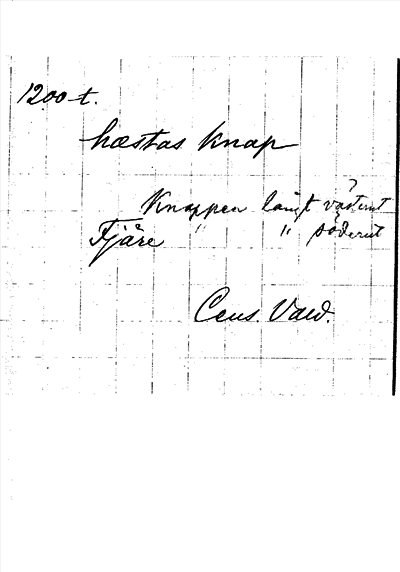 1200-t.
hæstas Knap
?
Knappen långt västerut
Fjäre " " söderut
Cens. Vald.